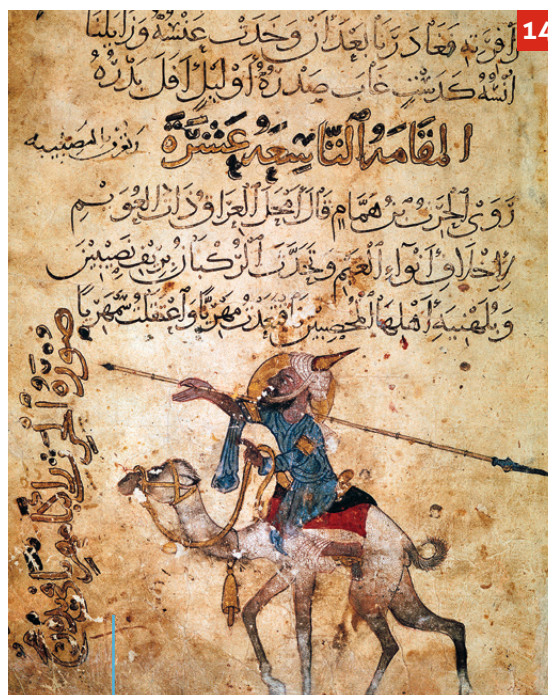 14
فغادرنا بعد ان وخدت عنسه وزايلنا
انسه كدست غاب صدره او ليل افل بدره
المقامة التاسعة عشرة
وتعرف النصيبية
روى الحرث بن همام قال امحل العراق ذات العويم
لاخلاف انواء الغيم وتحدث الركبان بريف نصيبين
وبلهنية اهلها المخصبين فاقتعدت مهريا واعتقلت سمهريا
صورة الحرث